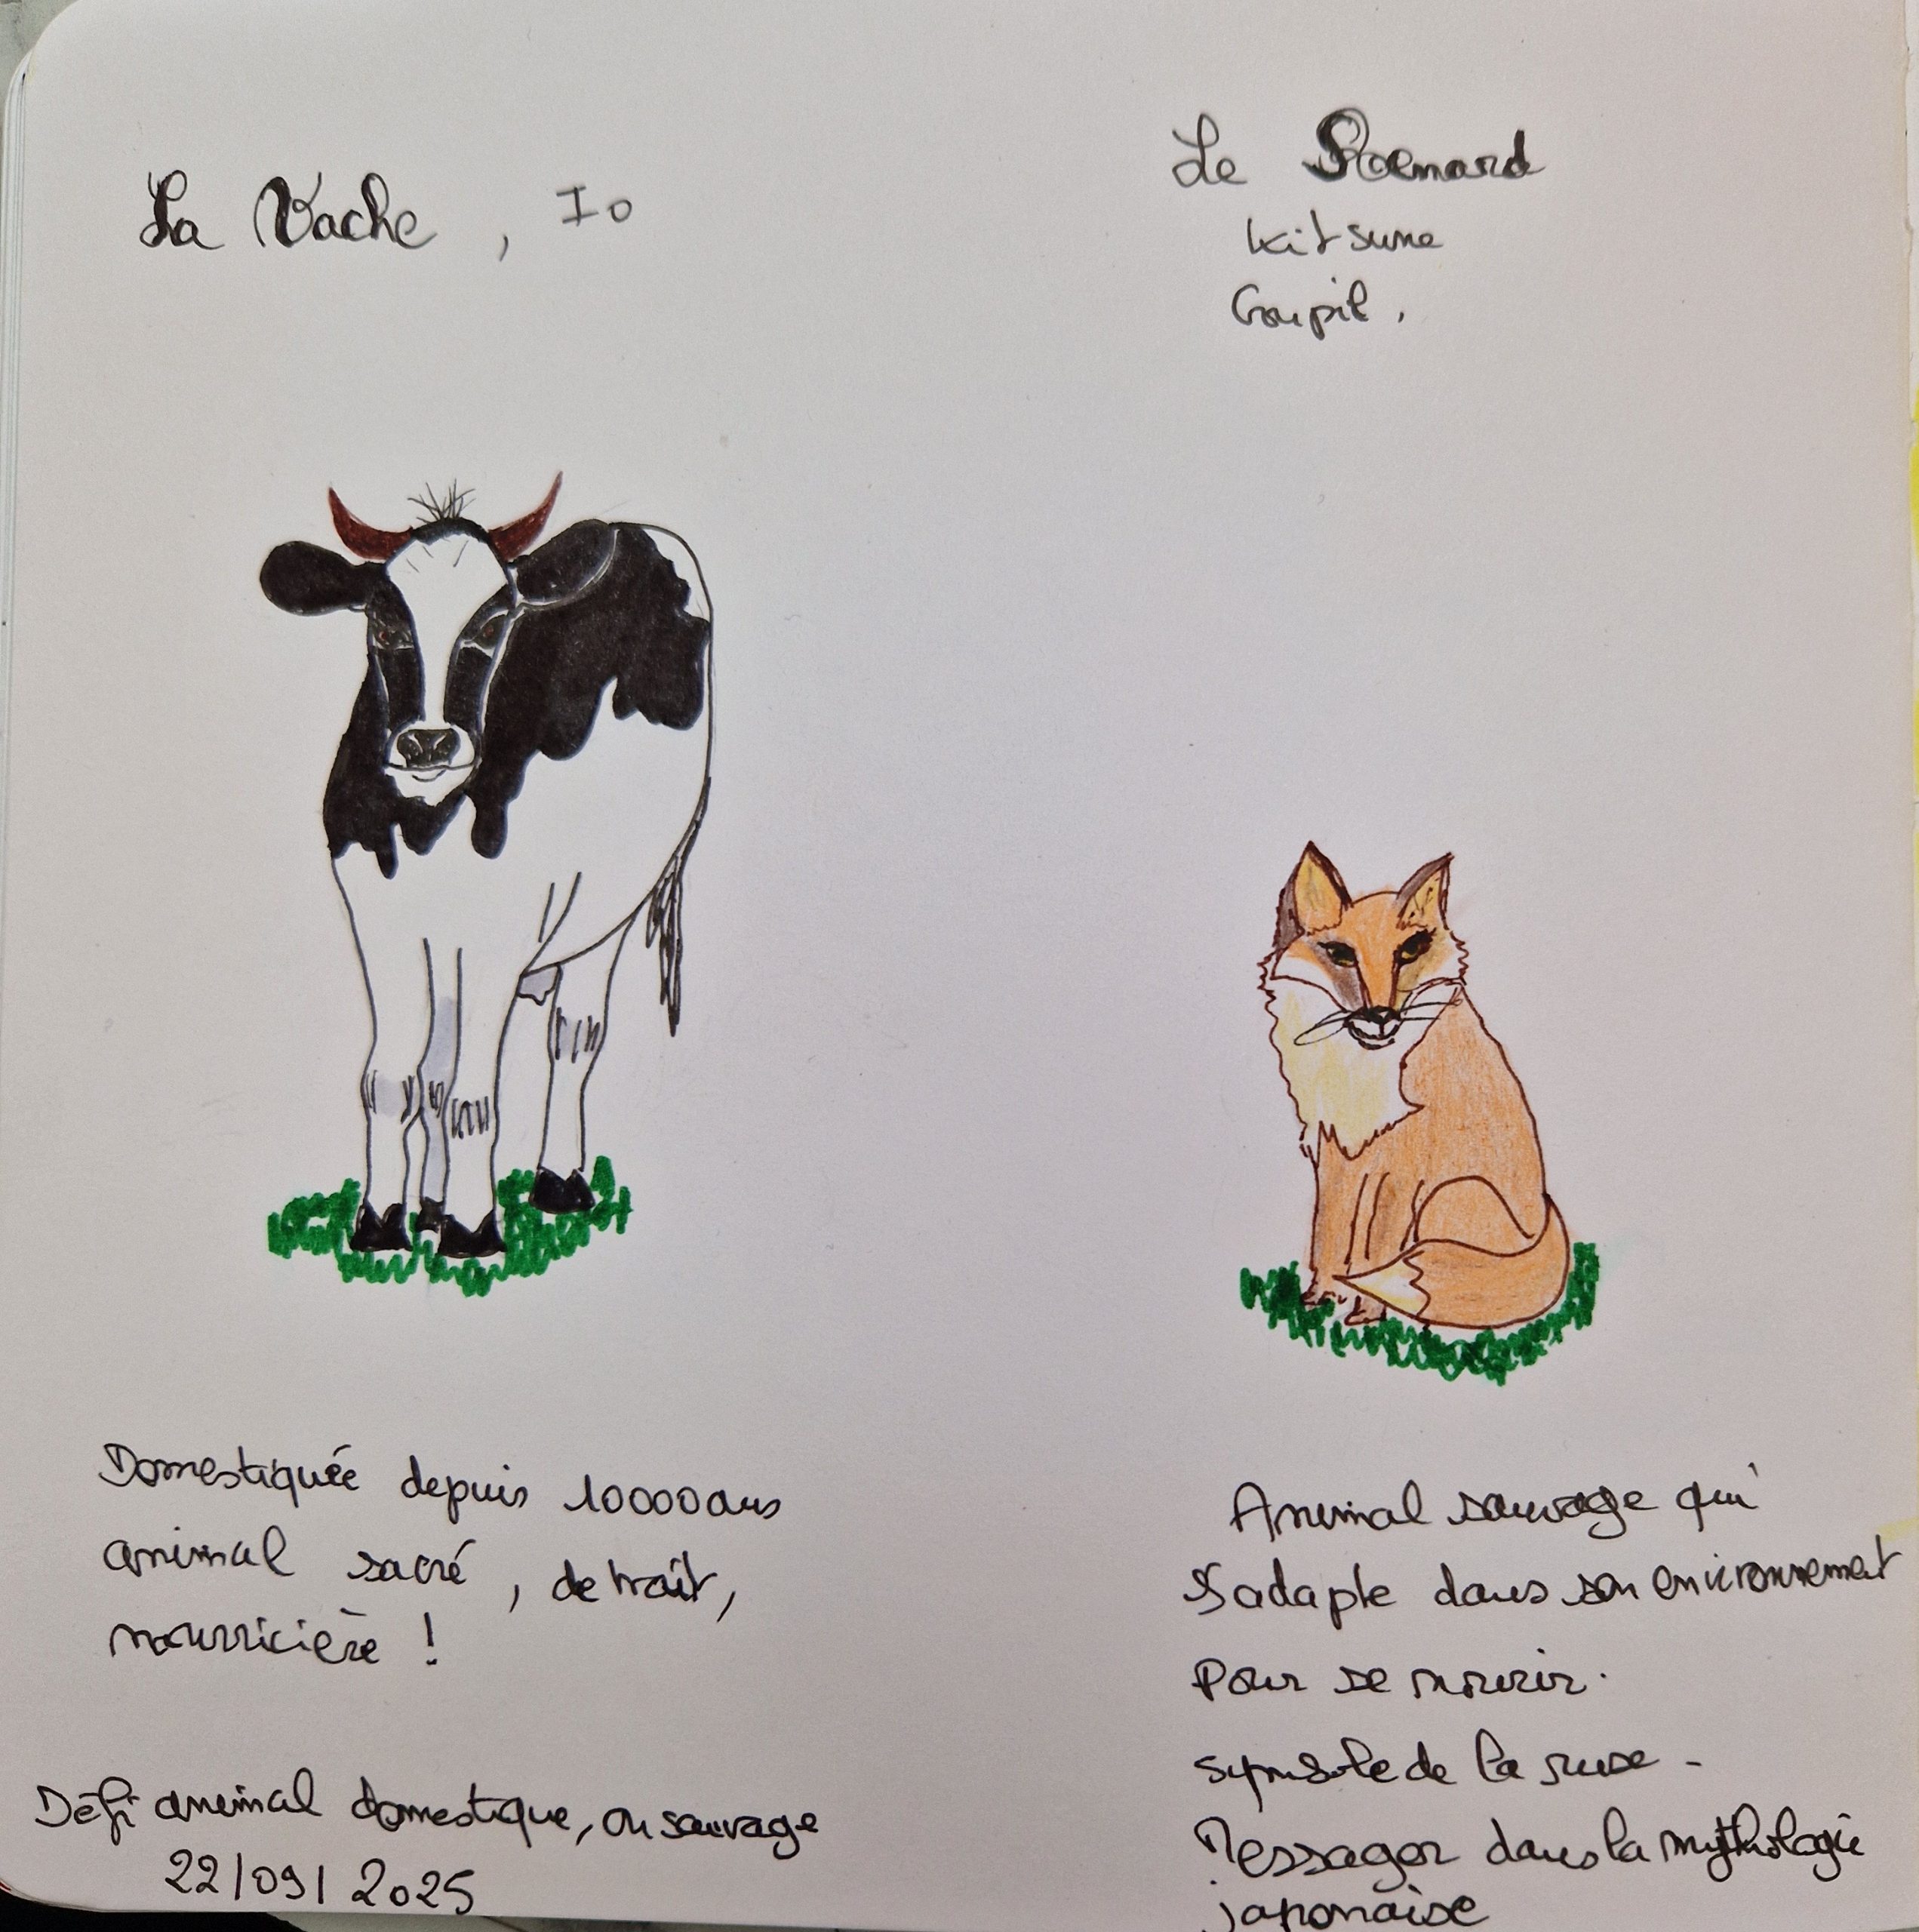 La Vache, Io
Domestiquée depuis 10000 ans
animal sacré, de trait,
nourricière !
Défi animal domestique, ou sauvage
22/09/2025
Le Renard
Kitsune
Goupil.
Animal sauvage qui
s'adapte dans son environnement
Pour se nourir.
symbole de la ruse -
Messager dans la mythologie
japonaise